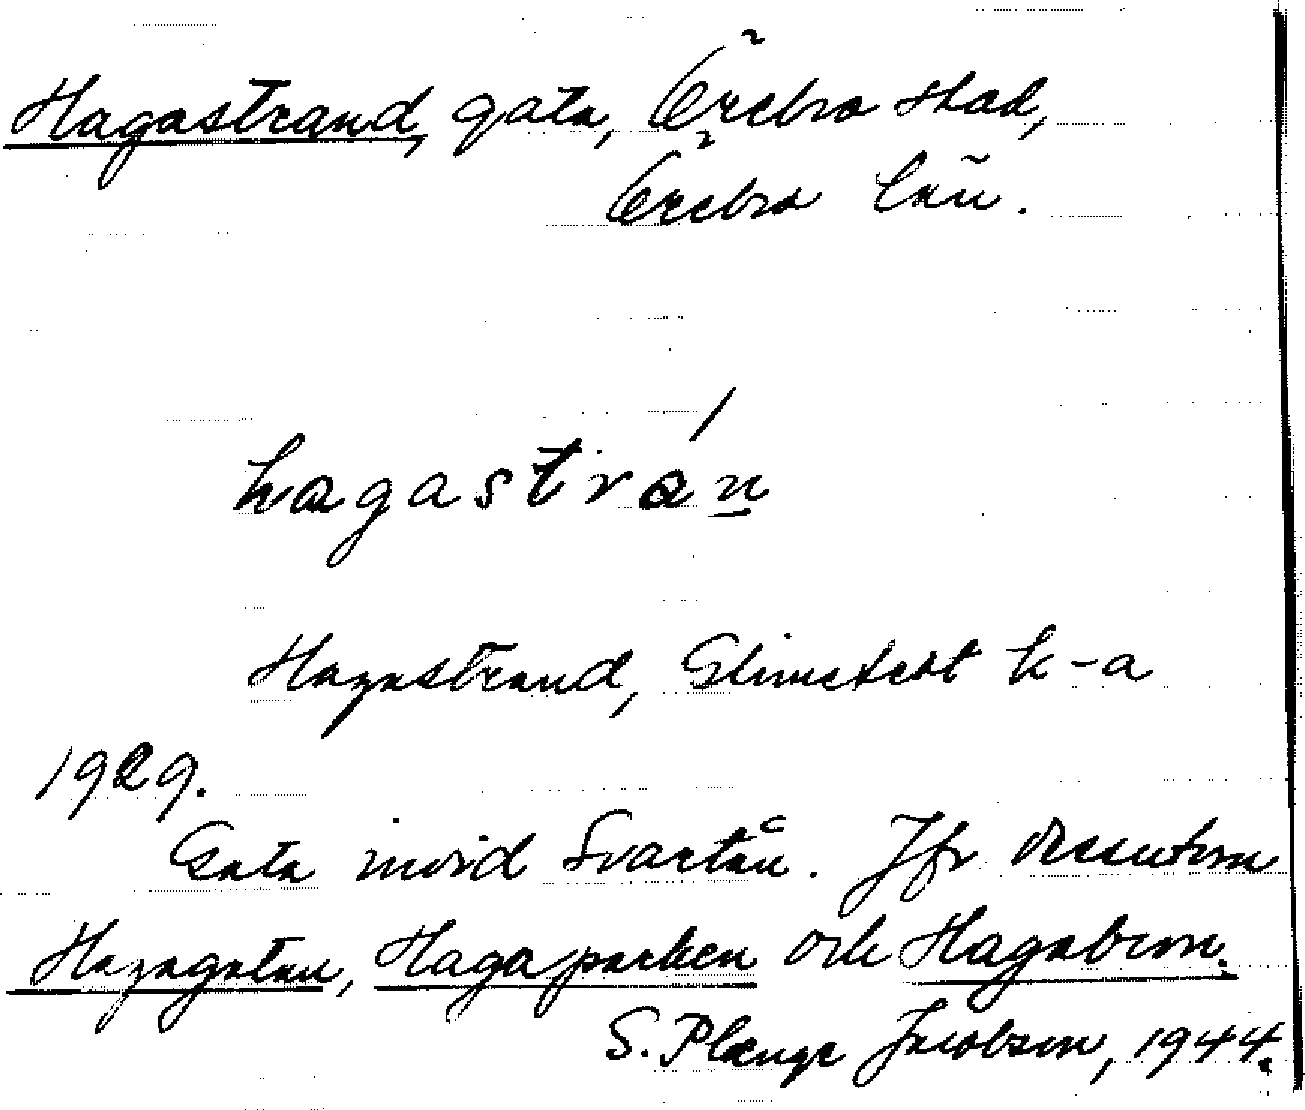 Hagastrand, gata, Örebro stad,
Örebro län.
hagastrán
Hagastrand, Elmstedt k-a
1929.
Gata invid Svartån. Jfr dessutom
Hagagatan, Hagaparken och Hagabron.
S. Plænge Jacobson, 1944.